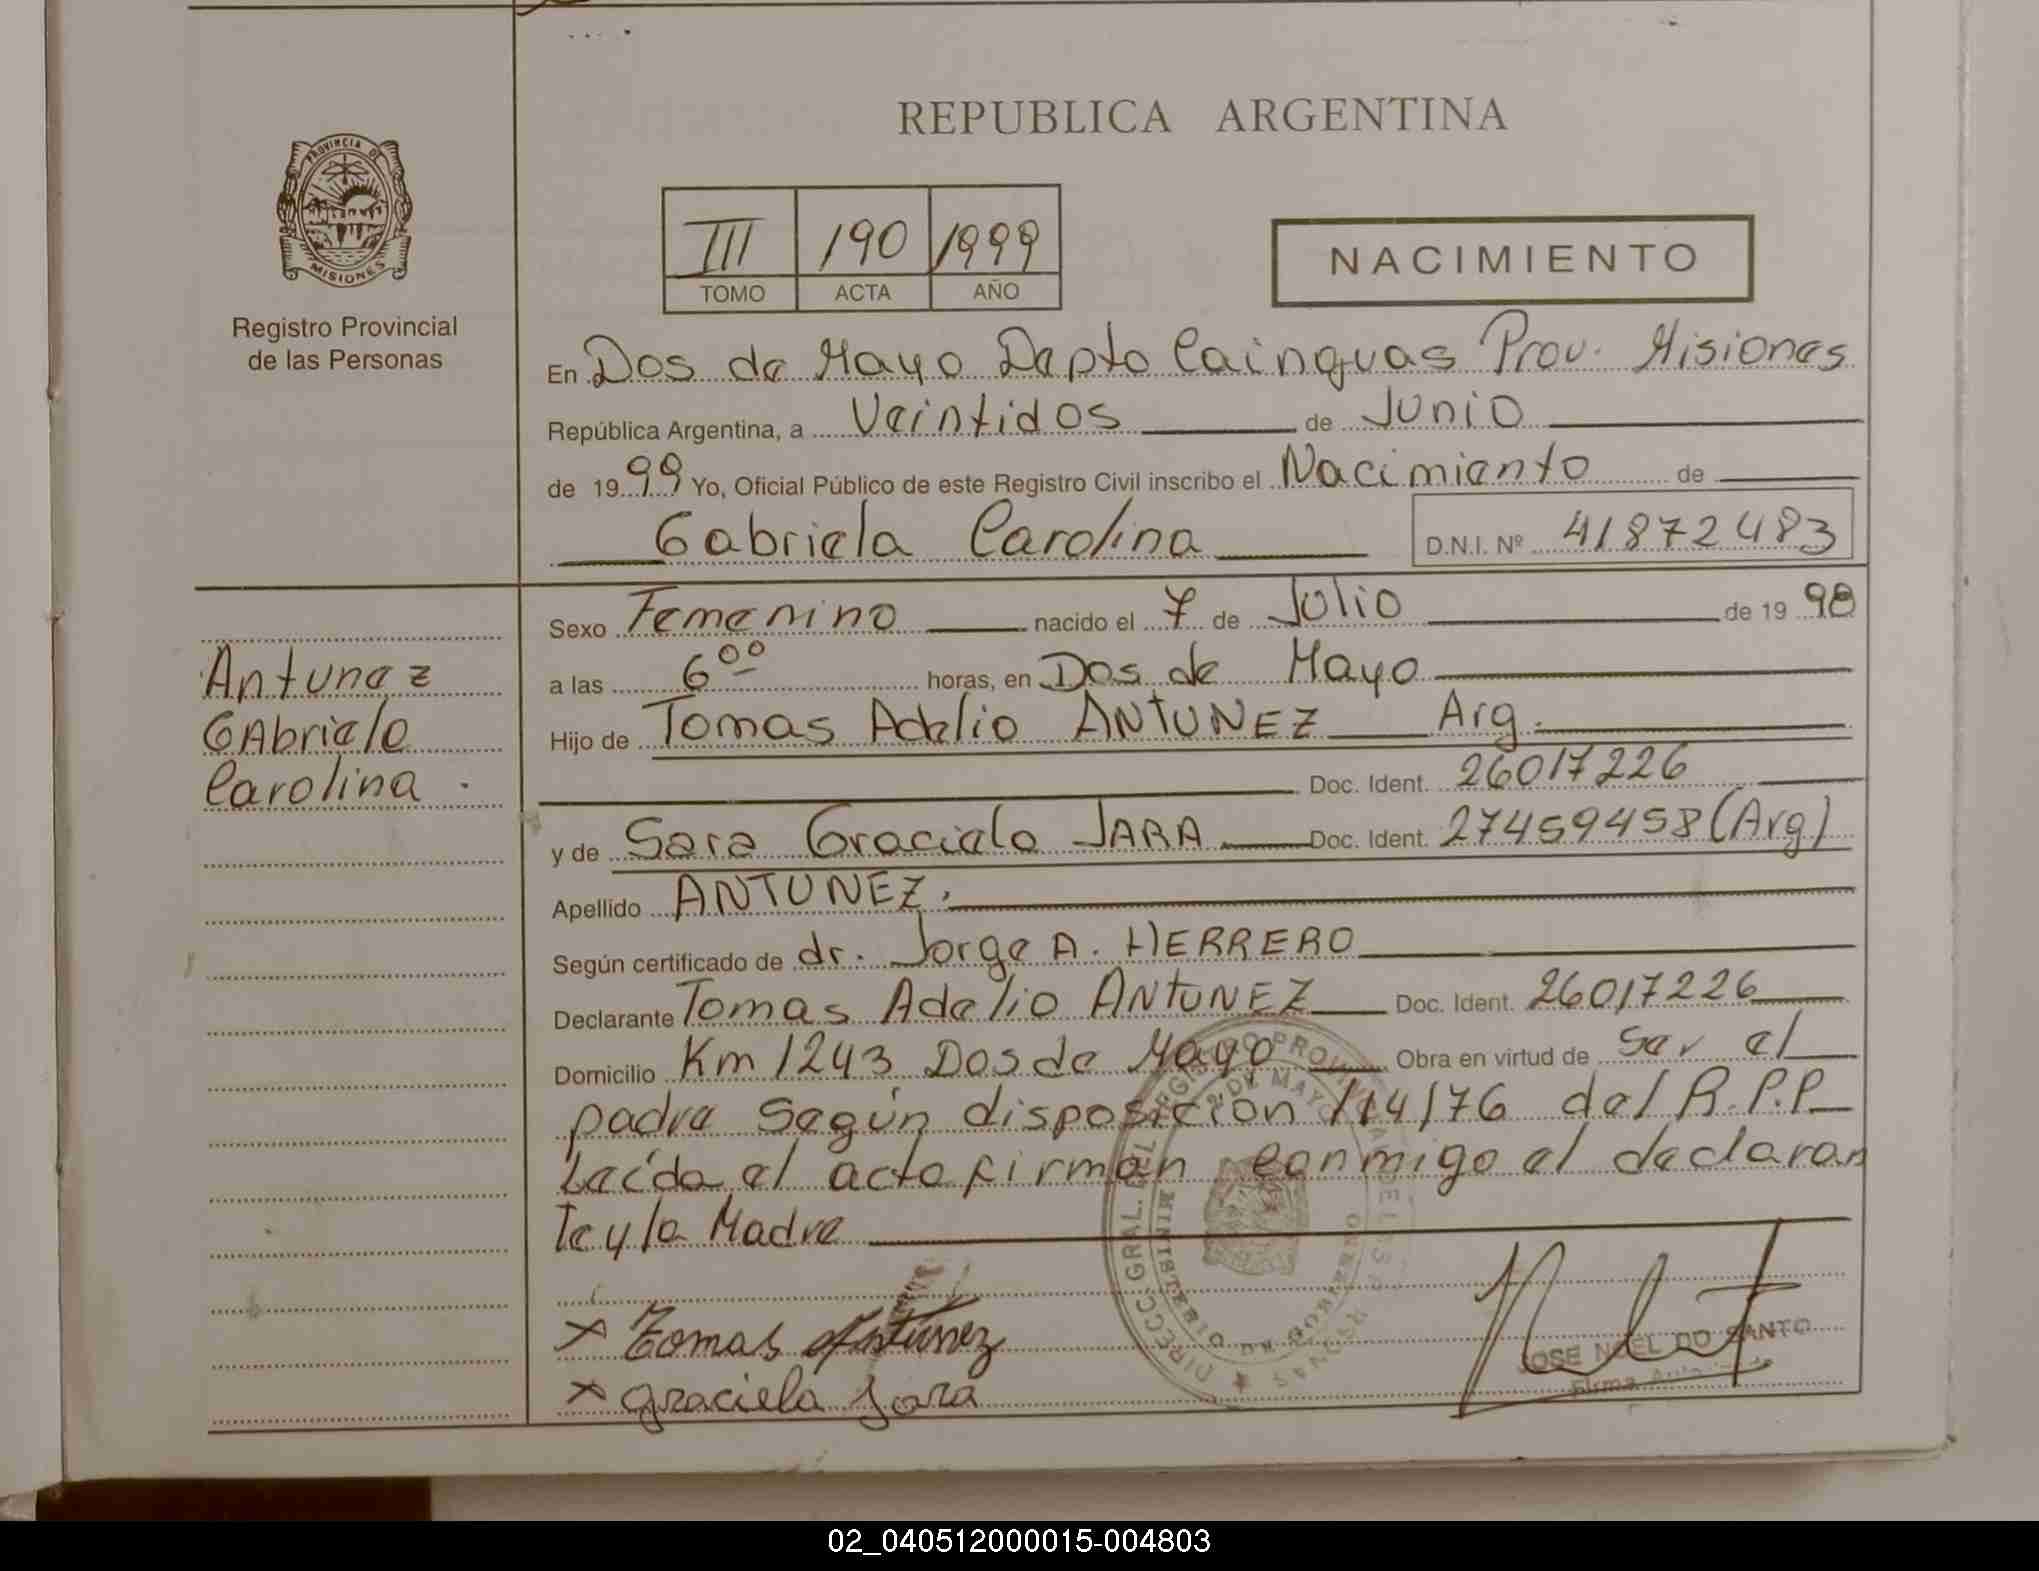 REPUBLICA ARGENTINA
PROVINCIA DE
MISIONES
Registro Provincial
de las Personas
III 190 1999
TOMO ACTA AÑO
NACIMIENTO
En Dos de Mayo Depto Cainguas Prov. Misiones
República Argentina, a Veintidos de Junio
de 1999 Yo, Oficial Público de este Registro Civil inscribo el Nacimiento de
Gabriela Carolina D.N.I. Nº 41872483
Antunez
GAbriela
Carolina.
Sexo Femenino nacido el 7 de Julio de 1998
a las 6 00 horas, en Dos de Mayo
Hijo de Tomas Adelio ANTUNEZ Arg.
Doc. Ident. 26017226
y de Sara Graciela JARA Doc. Ident. 27459458 (Arg)
Apellido ANTUNEZ.
Según certificado de dr. Jorge A. HERRERO
Declarante Tomas Adelio ANTUNEZ Doc. Ident. 26017226
Domicilio Km 1243 Dos de Mayo Obra en virtud de ser el
padre según disposición 114/76 del R.P.P
Leída el acta firman conmigo el declaran
te y la Madre
x Tomas Antunez
x graciela jara
JOSE NOEL DO SANTO
Firma
02_040512000015-004803